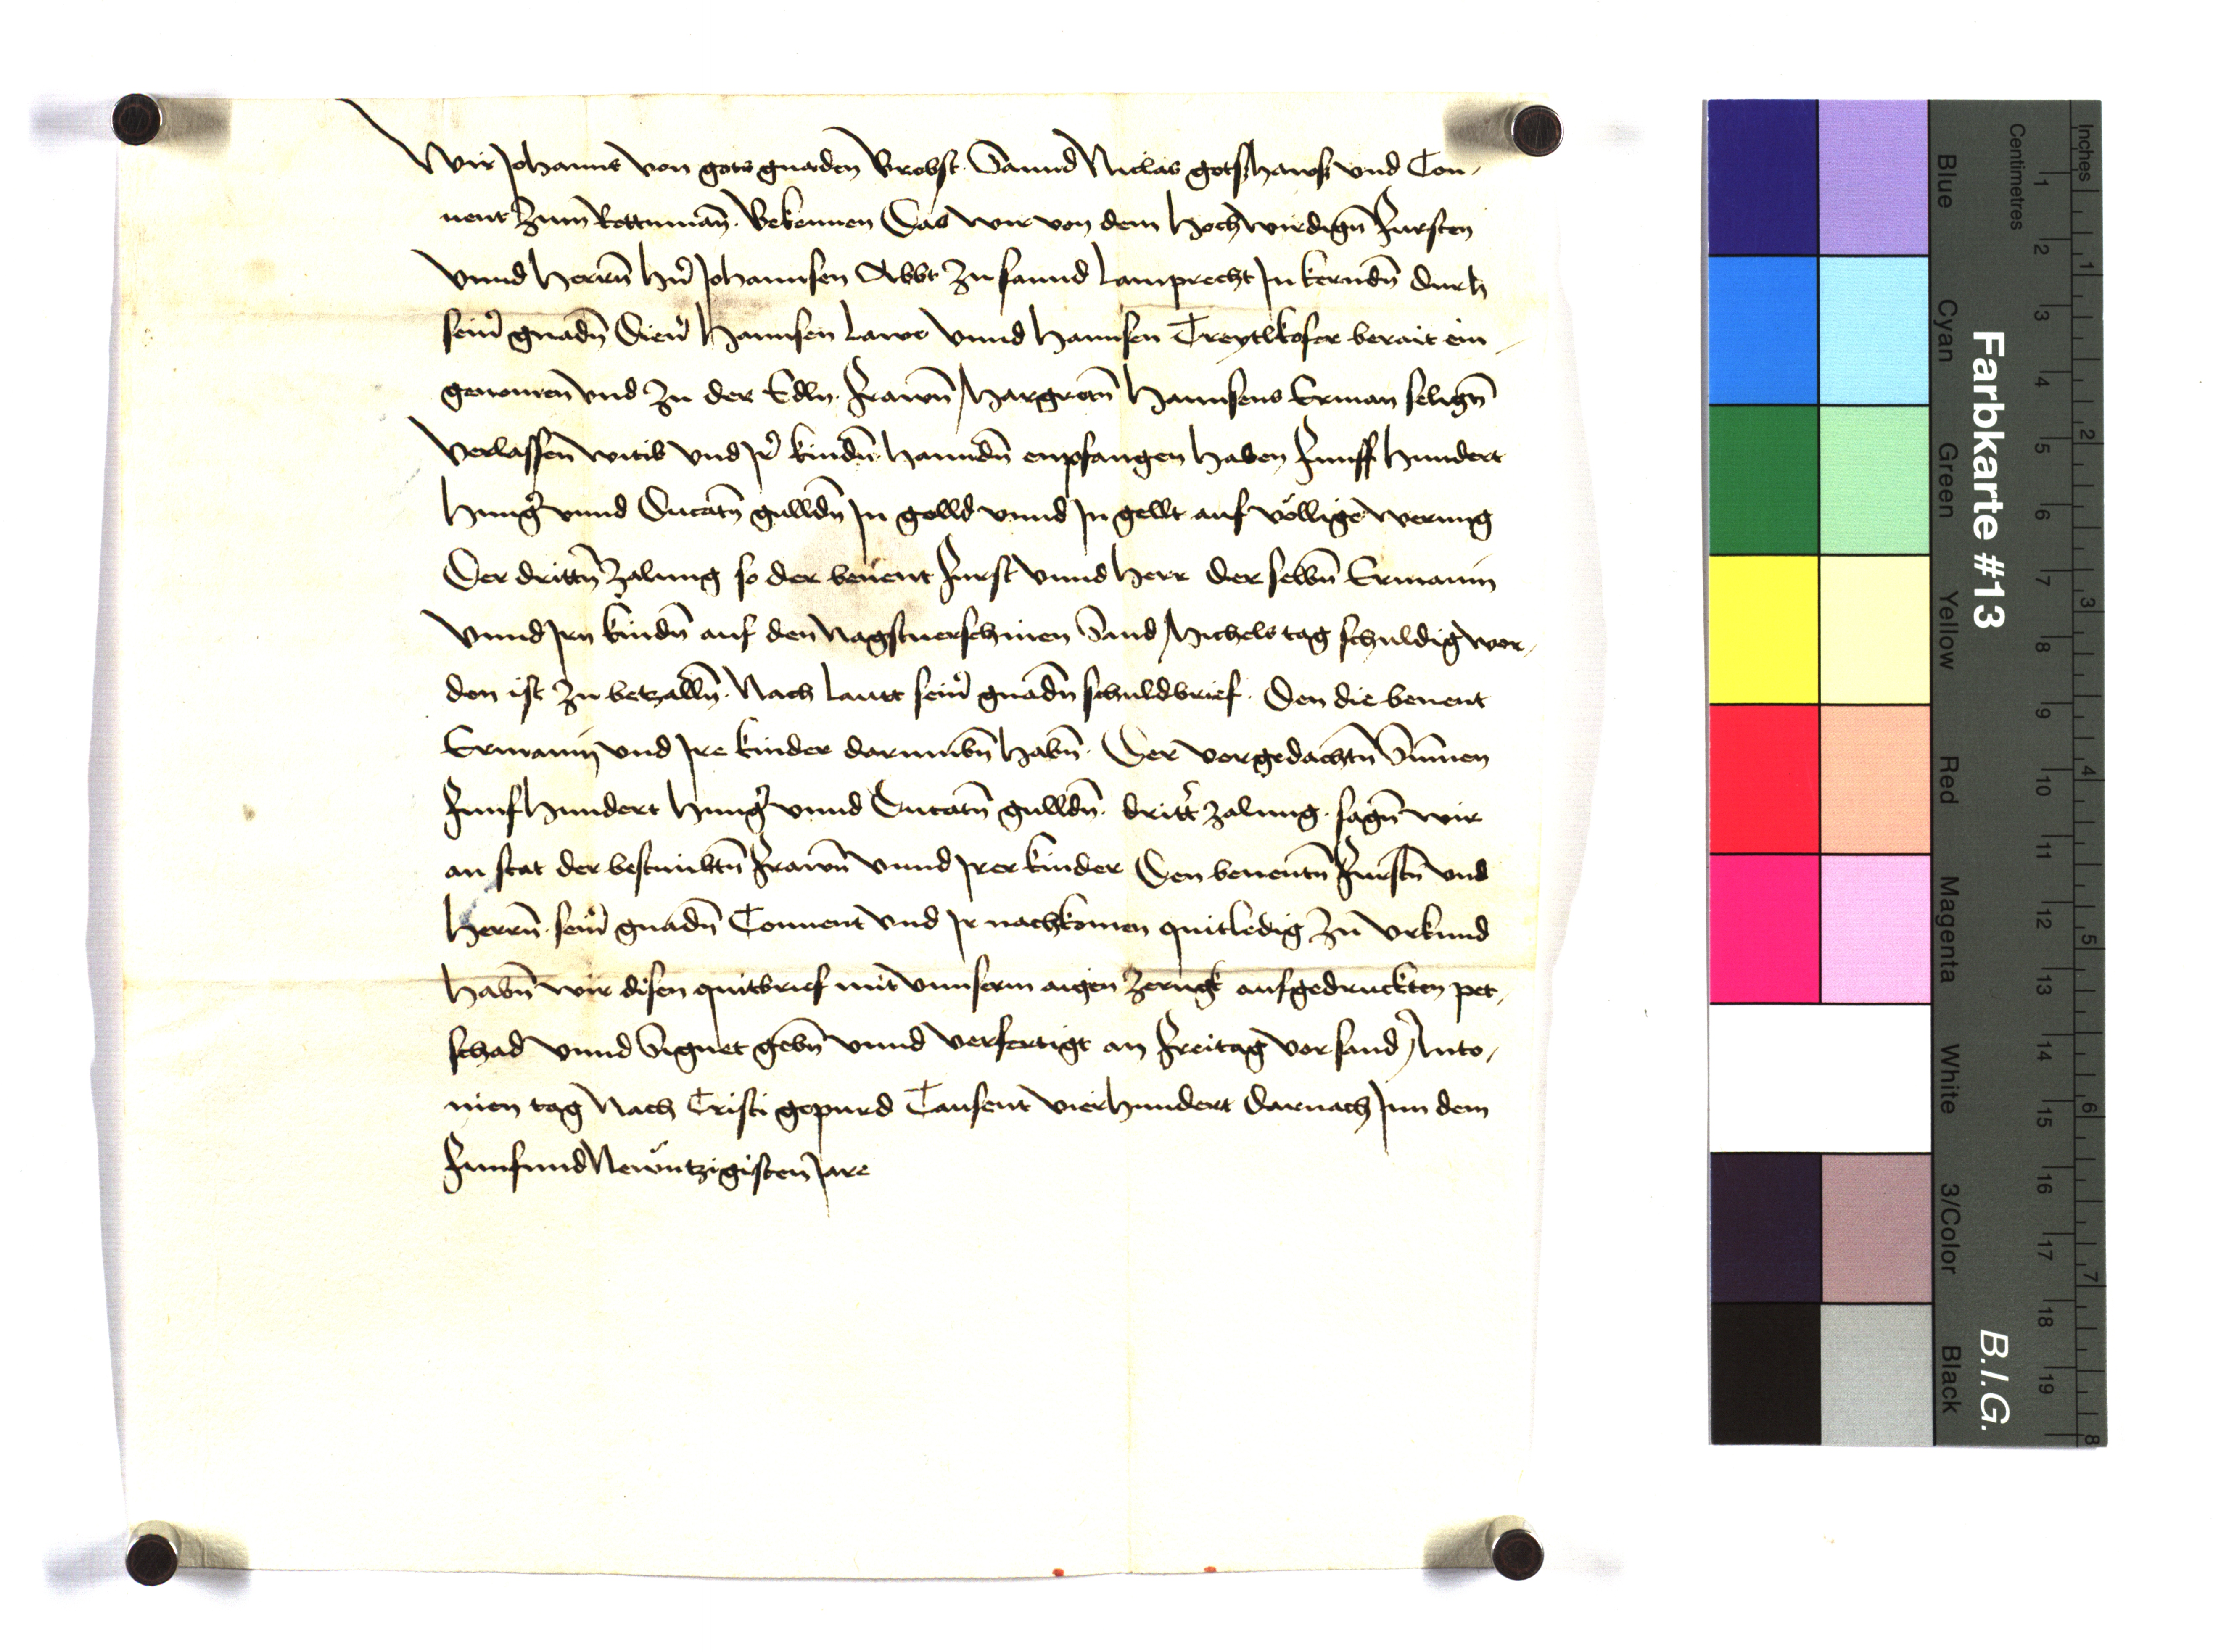 Wir Johanns von gots gnaden Brobst Sannd Niclas gotshaws vnd Con-
uent zum Rottnman. Bekennen Das wir von dem Hochwirdign Fursten
vnnd Herrn hn Johannsen Abbt zu sannd Lamprecht In kerndn durh
seinr gnadn Dienr Hannsen Lawr vnnd Hannsen Treytlkofer berait ein-
genomen vnd zu der Edln. Frawn Margretn Hannsens Erman selign
verlassen witib vnd Jr kindn Hanndn enpfangen haben Funff Hundert
Hungr vnnd Ducatn gulldn In golld vnnd In gellt auf völlige werung
Der drittn zalung so der benent Furst vnnd Herr Derselbn Ermanin
vnnd Irn kindn auf den Nagstuerschinen Sand Michels tag schuldig wor-
den ist zu betzalln. Nach lautt seinr gnadn schuldbrief. Den die benent
Ermanin vnd Jre kinder darumbn habn. Der vorgedachtn Summen
Funfhundert Hungr vnnd Ducatn gulldn. dritt zalung. sagn wir
an stat der bestimbtn Frawn vnnd Jrer kinder Den benentn Furstn vnd
Herrn. seinr gnadn Conuent vnd Jr nachkomen quitledig zu vrkund
habn wir disen quitbrief mit vnnserm aigen zerugk aufgedruckten pet-
schad vnnd Signet gebn vnnd verfertigt an Freitag vor sand Anto-
nien tag Nach Cristi gepurd Tausent vierhundert Darnach Inn dem
Funfundnewntzigisten Jare
Farbkarte #13
B.I.G.
Centimetres
Inches
Blue
Cyan
Green
Yellow
Red
Magenta
White
3/Color
Black
1 2 3 4 5 6 7 8 9 10 11 12 13 14 15 16 17 18 19
1 2 3 4 5 6 7 8